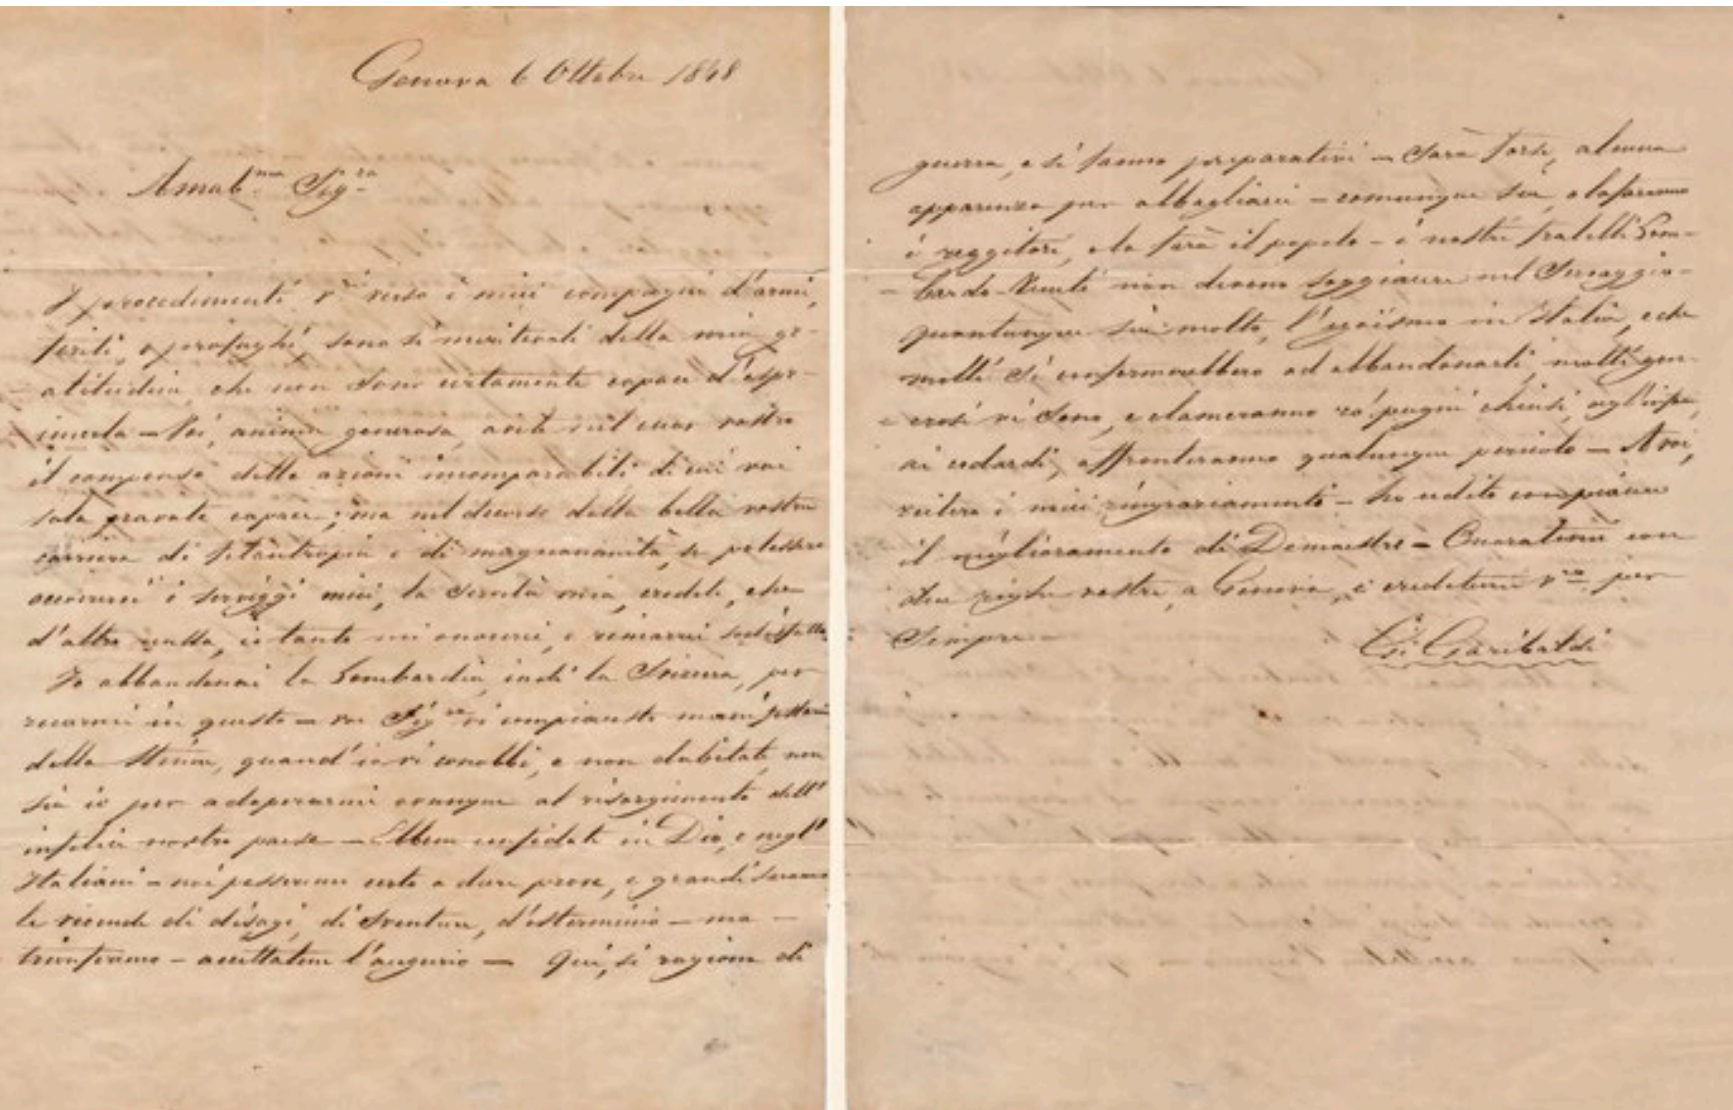 Genova 6 Ottobre 1848
Amab.ma Sig.ra
I procedimenti v.i verso i miei compagni d'armi,
feriti, o profughi, sono sì meritevoli della mia gr-
-atitudine, che non sono certamente capace d'espri-
imerla – Voi, anima generosa, avete nel cuor vostro
il compenso delle azioni incomparabili di cui voi
sola capace; ma nel decorso della bella vostra
carriera di filantropia e di magnanimità, se potessero
occorrervi i servigi miei, la vita mia, credete, che
d'altro nulla, io tanto mi onorerei, e rimarrei sodisfatto
Io abbandonai la Lombardia, indi la Svizzera, per
recarmi in queste – voi Sig.ra vi compiaceste manifestarmi
della stima, quand'io vi conobbi, e non dubitate non
sia io per adoperarmi ovunque al risorgimento dell'
infelice nostro paese – Ebben confidate in Dio, e negl'
Italiani – noi possiamo certo a dure prove, e grandi saranno
le vicende di disagi, di sventure, d'esterminio – ma –
trionferemo – accettatene l'augurio – Qui, si ragiona di
guerra, e si fanno preparativi – Sarà forse, alcuna
apparenza per abbagliarci – comunque sia, o la faranno
i reggitori, o la farà il popolo – i nostri fratelli Lom-
-bardo-Veneti non devono soggiacere nel servaggio –
quantunque sia molto, l'egoismo in Italia, e che
molti si conformerebbero ad abbandonarli, molti gen-
-erosi vi sono, e clameranno co' pugni chiusi,
ai codardi, affronteranno qualunque pericolo – A voi,
reitero i miei ringraziamenti – ho udito con piacere
il miglioramento di Demaestri – Onoratemi con
due righe vostre, a Genova, e credetemi v.ro per
sempre –
G. Garibaldi